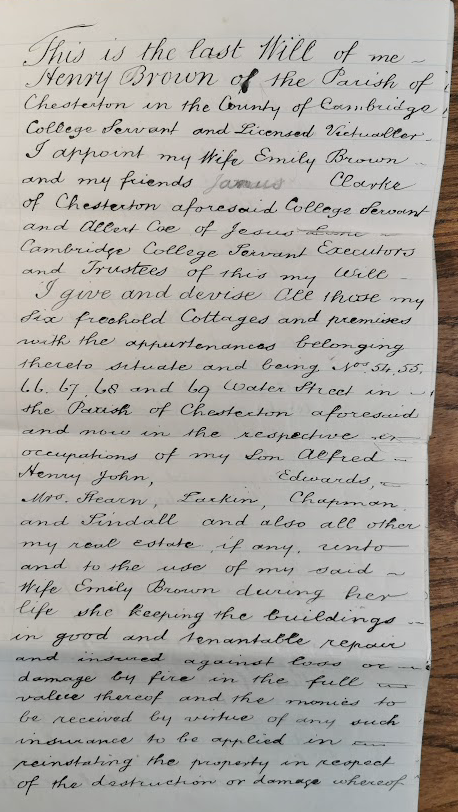 This is the last Will of me
Henry Brown of the Parish of
Chesterton in the County of Cambridge
College Servant and Licensed Victualler
I appoint my Wife Emily Brown
and my friends James Clarke
of Chesterton aforesaid College Servant
and Albert Coe of Jesus Lane
Cambridge College Servant Executors
and Trustees of this my Will
I give and devise All those my
six freehold Cottages and premises
with the appurtenances belonging
thereto situate and being Nos. 54, 55,
66. 67. 68 and 69 Water Street in
the Parish of Chesterton aforesaid
and now in the respective
occupations of my Son Alfred
Henry John, Edwards,
Mrs. Hearn, Larkin, Chapman
and Tindall and also all other
my real estate, if any, unto
and to the use of my said
Wife Emily Brown during her
life she keeping the buildings
in good and tenantable repair
and insured against loss or
damage by fire in the full
value thereof and the monies to
be received by virtue of any such
insurance to be applied in
reinstating the property in respect
of the destruction or damage whereof